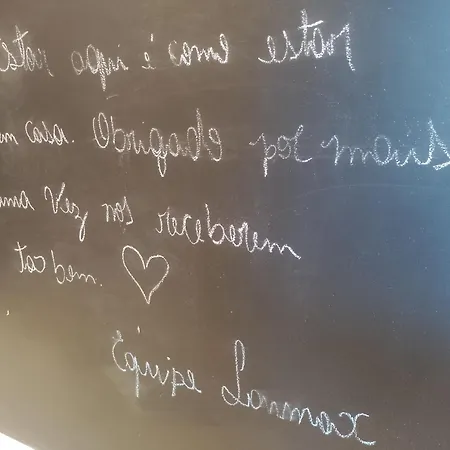 Estar aqui é como estar
em casa. Obrigado por mais
uma vez nos receberem
tao bem. ♡
Equipe Lanmax